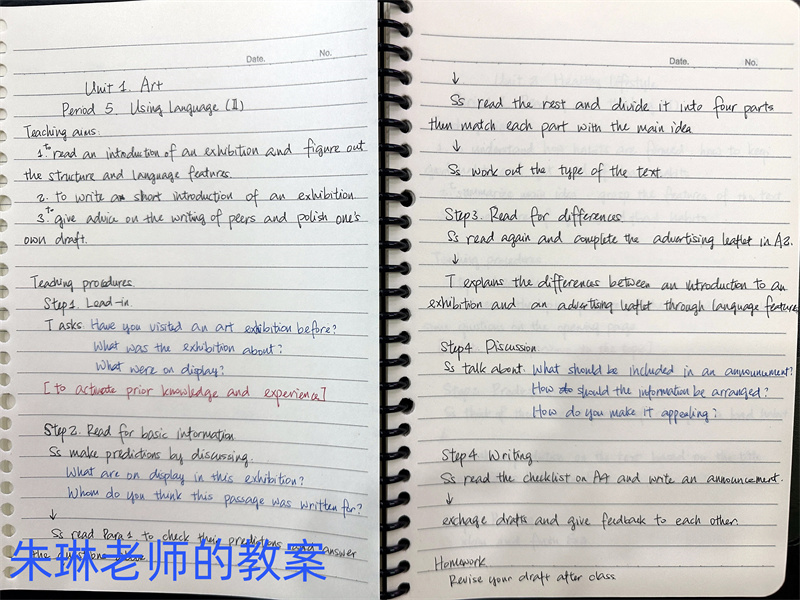 Date.
No.
Unit 1. Art
Period 5. Using Language (II)
Teaching aims:
1. To read an introduction of an exhibition and figure out
the structure and language features.
2. to write a short introduction of an exhibition
3. To give advice on the writing of peers and polish one's
own draft.
Teaching procedures.
Step 1. Lead-in.
T asks. Have you visited an art exhibition before?
What was the exhibition about?
What were on display?
[to activate prior knowledge and experience]
Step 2. Read for basic information
Ss make predictions by discussing.
What are on display in this exhibition?
Whom do you think this passage was written for?
↓
Ss read Para 1 to check their predictions and answer
the questions
朱琳老师的教案
Date.
No.
↓
Ss read the rest and divide it into four parts
then match each part with the main idea
↓
Ss work out the type of the text.
Step3. Read for differences
Ss read again and complete the advertising leaflet in A2.
↓
T explains the differences between an introduction to an
exhibition and an advertising leaflet through language features
Step4 Discussion
Ss talk about. What should be included in an announcement?
How should the information be arranged?
How do you make it appealing?
Step4 Writing
Ss read the checklist on A4 and write an announcement.
↓
exchage drafts and give feedback to each other.
Homework
Revise your draft after class